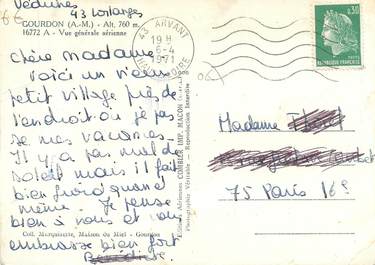 6€
Védrines
43 Lorlanges
GOURDON (A.-M.) - Alt. 760 m.
16772 A - Vue générale aérienne
Chère Madame
voici un vieux
petit village près de
l'endroit ou je pas
se mes vacances.
Il y a pas mal de
soleil mais il fait
bien froid quand
même. Je pense
bien à vous et vous
embrasse bien fort
Coll. Marquisette, Maison du Miel - Gourdon
Editions Aériennes COMBIER IMP. MACON
Photographie Véritable - Reproduction Interdite
43 ARVANT
19 H
6-4
1971
HAUTE LOIRE
0,30
REPUBLIQUE FRANÇAISE
Madame
75 Paris 16e